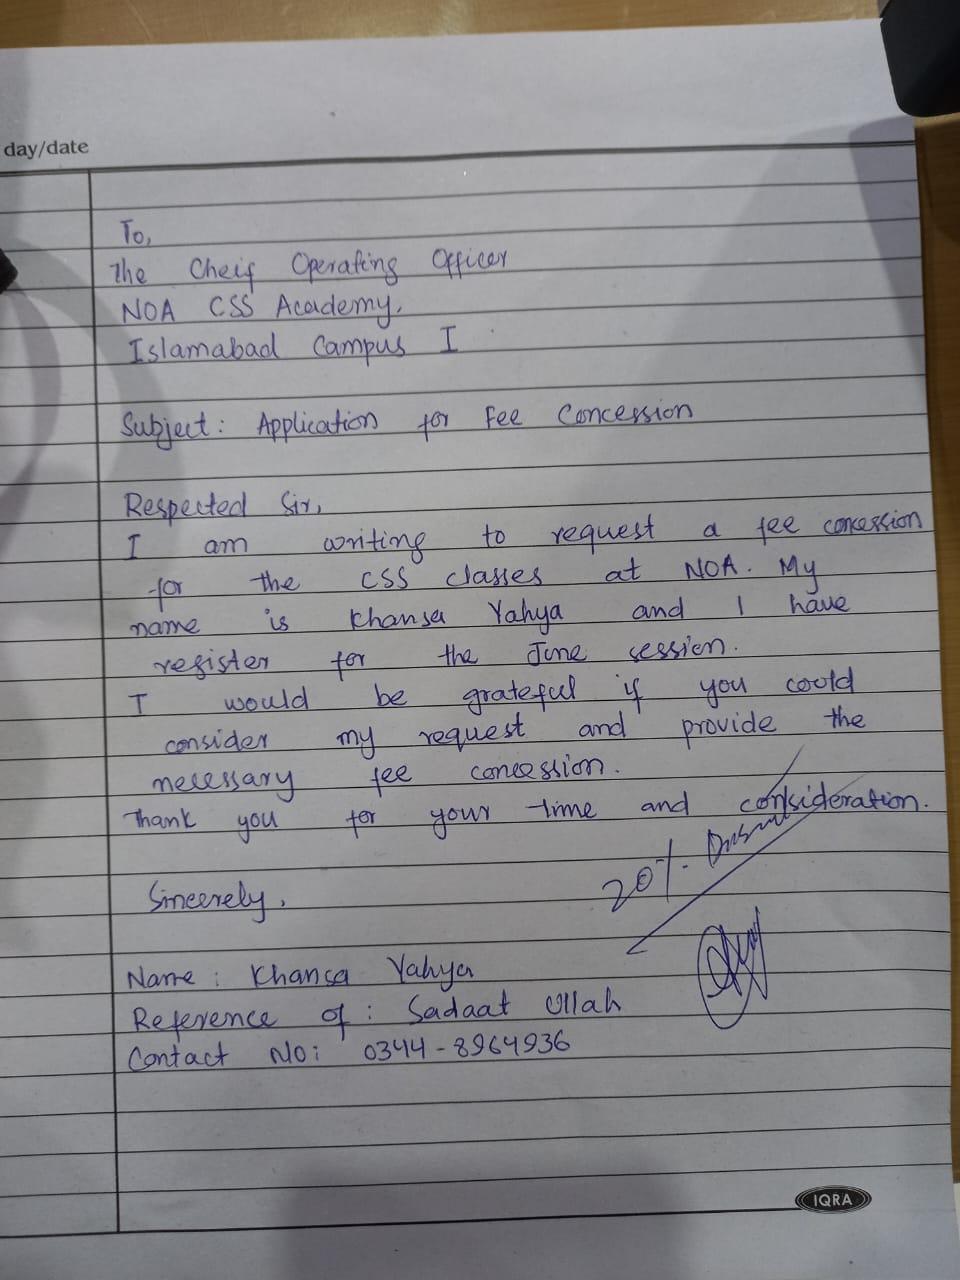 day/date
To,
The Cheif Operating Officer
NOA CSS Academy,
Islamabad Campus I
Subject: Application for Fee Concession
Respected Sir,
I am writing to request a fee concession
for the CSS classes at NOA. My
name is Khansa Yahya and I have
register for the June session.
I would be grateful if you could
consider my request and provide the
necessary fee concession.
Thank you for your time and consideration.
20%
Sincerely,
Name: Khansa Yahya
Reference of: Sadaat Ullah
Contact No: 0344-8964936
IQRA